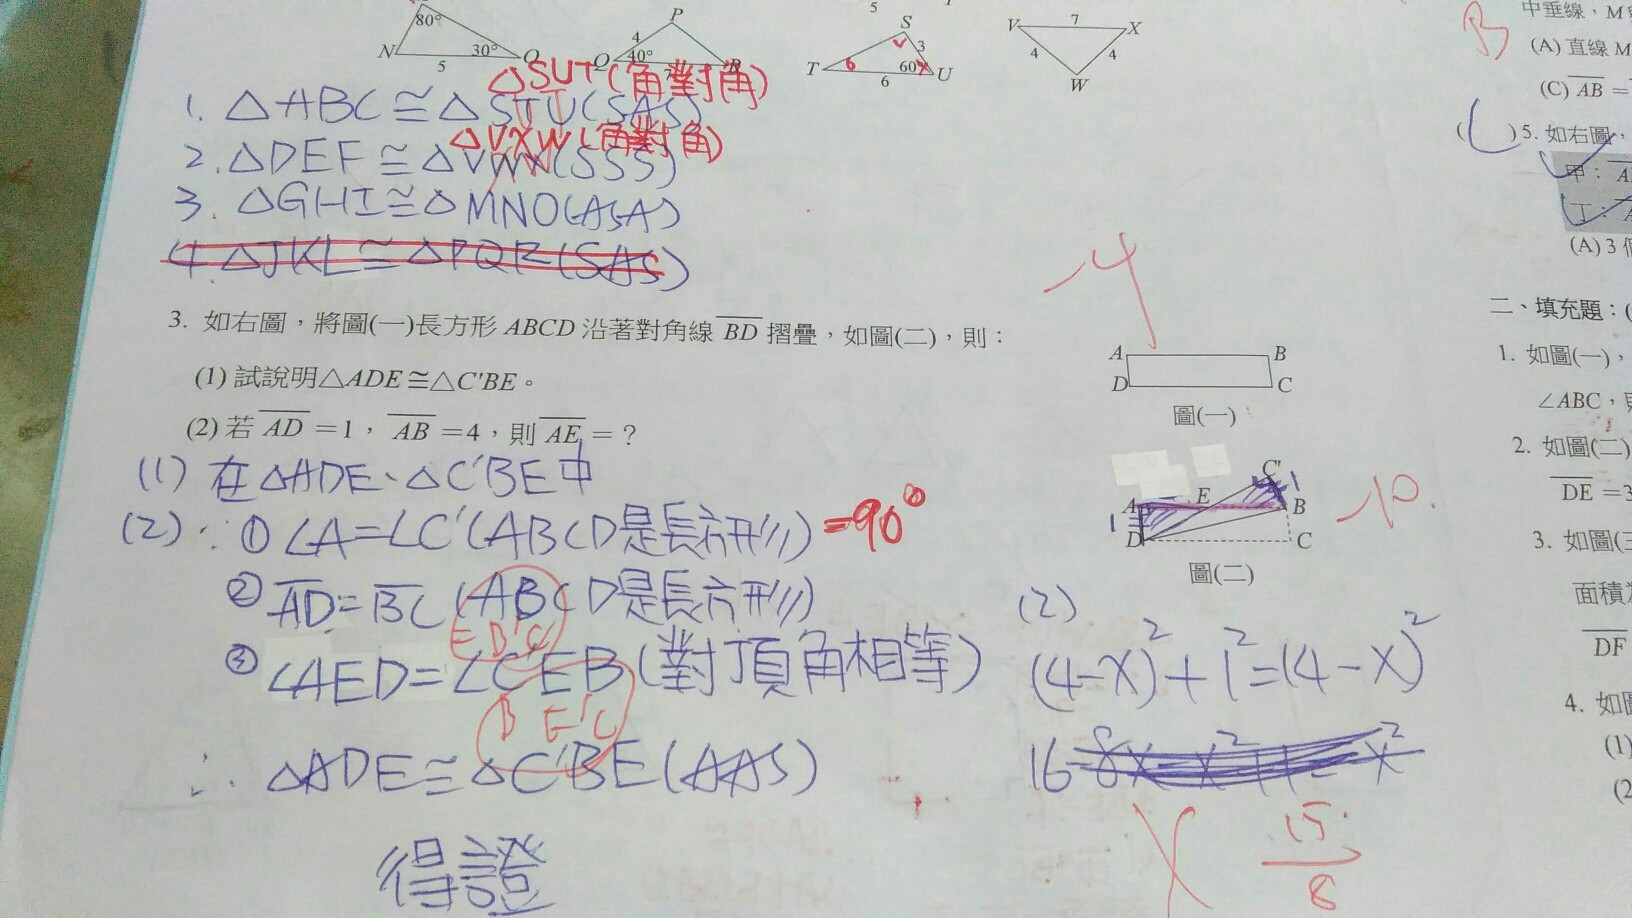 80°
N 30° O
5
P
4
Q 40° R
5
S
3
T 6 60° U
6
V 7 X
4 4
W
△SUT(角對角)
1. △ABC≅△STU(SAS)
△VXW(角對角)
2. △DEF≅△VWX(SSS)
3. △GHI≅△MNO(ASA)
4. △JKL≅△PQR(SAS)
-4
3. 如右圖,將圖(一)長方形 ABCD 沿著對角線 BD 摺疊,如圖(二),則:
(1) 試說明△ADE≅△C'BE。
(2) 若 AD =1, AB =4,則 AE = ?
A B
D C
圖(一)
(1) 在△ADE、△C'BE中
(2) ∵ ① ∠A=∠C'(ABCD是長方形) =90°
② AD=BC (ABCD是長方形)
③ ∠AED=∠C'EB(對頂角相等)
E B'C
B E'C
∴ △ADE≅△C'BE(AAS)
得證
C'
1
A E B
1
D C
圖(二)
-10.
(2)
(4-X)²+1²=(4-X)²
16-8x-x²+1=-x²
15
8
B
中垂線,M
(A) 直線 M
(C) AB =
( ) 5. 如右圖,
甲:
丁:
(A) 3 個
二、填充題:(
1. 如圖(一),
∠ABC,
2. 如圖(二)
DE =3
3. 如圖(三
面積為
DF
4. 如圖
(1)
(2